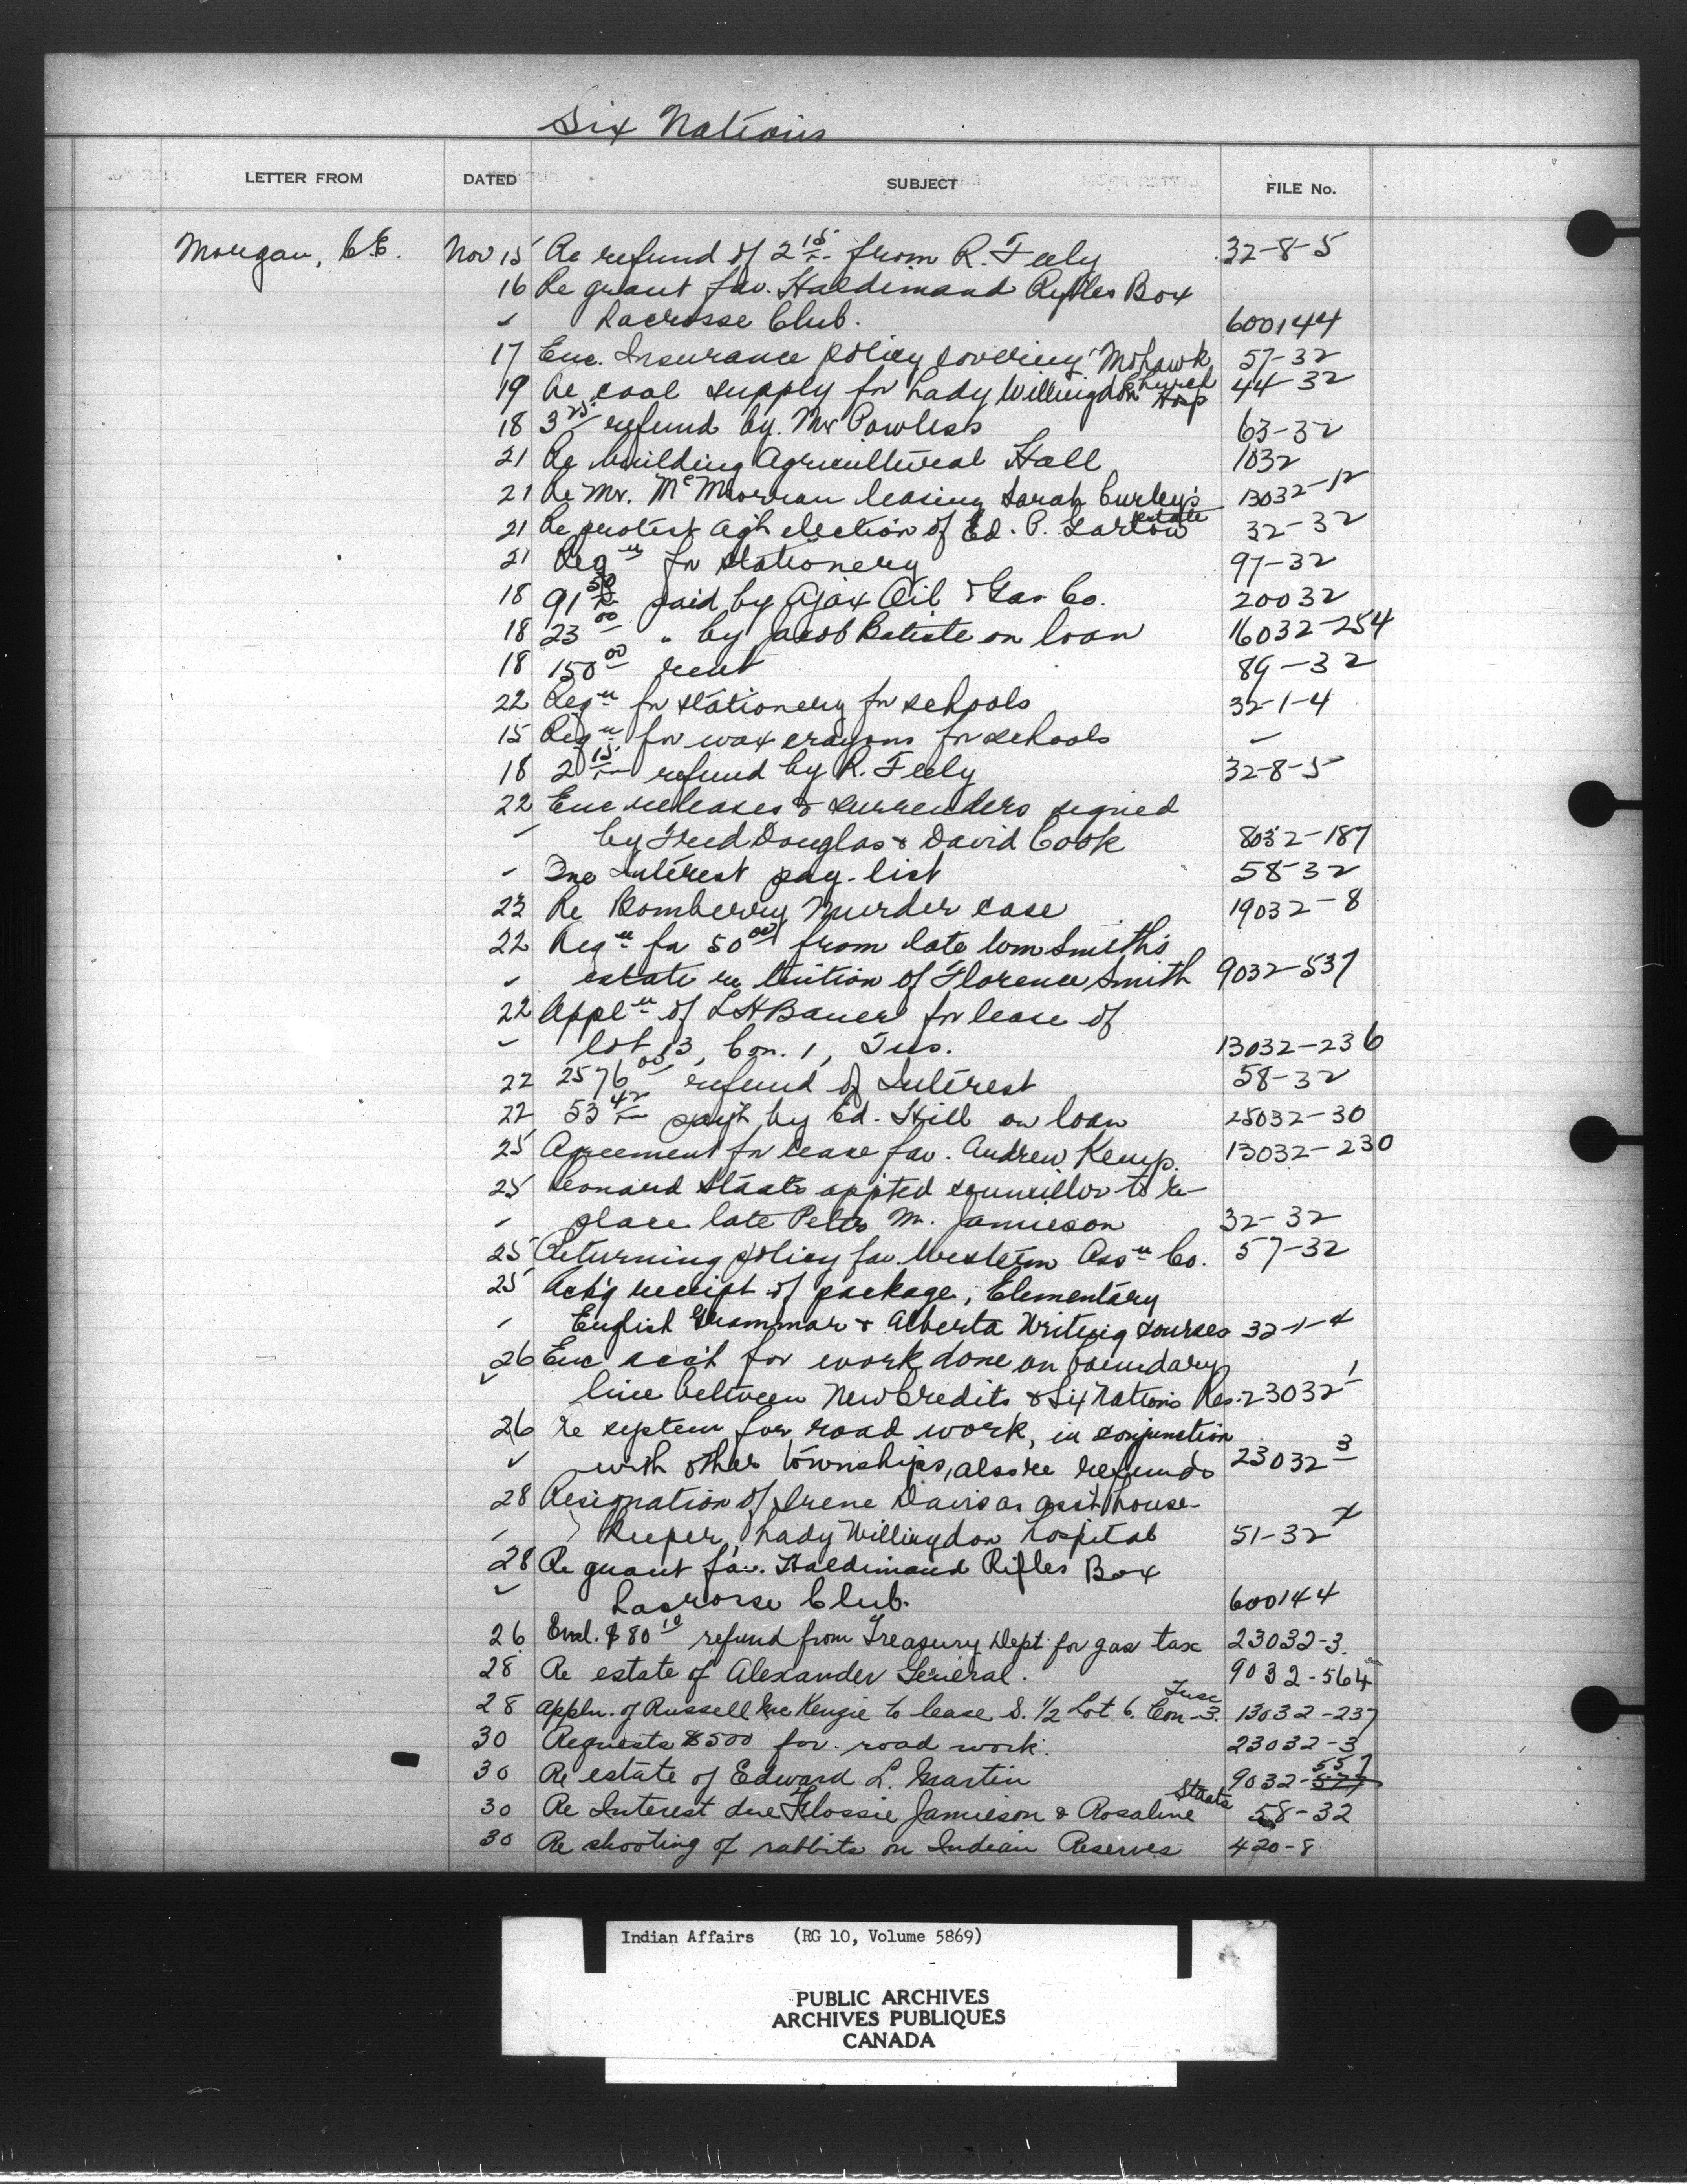 Six Nations
LETTER FROM DATED SUBJECT FILE No.
Morgan, C.E. Nov 15 Re refund of 2 15 from R. Feely 32-8-5
16 Re grant fav. Haldimand Rifles Box
" Lacrosse Club. 600144
17 Enc. Insurance policy covering Mohawk Church 57-32
19 Re coal supply for Lady Willingdon Hosp 44-32
18 3 25 refund by Mr Powless 63-32
21 Re building Agricultural Hall 1032
21 Re Mr. McMorran leasing Sarah Curley's estate 13032-12
21 Re protest agst election of Ed. P. Garlow 32-32
21 Reqn for stationery 97-32
18 91 50 paid by Ajax Oil & Gas Co. 20032
18 23 00 " by Jacob Batiste on loan 16032-254
18 150 00 rent 89-32
22 Reqn for stationery for schools 32-1-4
15 Reqn for wax crayons for schools "
18 2 15 refund by R. Feely 32-8-5
22 Enc releases & surrenders signed
" by Fred Douglas & David Cook 8032-187
" Enc Interest pay-list 58-32
23 Re Bomberry Murder case 19032-8
22 Reqn for 50 00 from late Wm Smith's
" estate re tuition of Florence Smith 9032-537
22 Appln of L H Bauer for lease of
" lot 13, Con. 1, Tus. 13032-236
22 2576 00 refund of Interest 58-32
22 53 42 pay't by Ed. Hill on loan 25032-30
25 Agreement for lease fav. Andrew Kemp. 13032-230
25 Leonard Staats appted councillor to re-
" place late Peter M. Jamieson 32-32
25 Returning policy fav. Western Assn Co. 57-32
25 Ack'g receipt of package, Elementary
" English Grammar & Alberta Writing courses 32-1-4
26 Enc acc't for work done on boundary
" line between New Credits & Six Nations Res. 23032-1
26 Re system for road work, in conjunction
" with other townships, also re refunds 23032-3
28 Resignation of Irene Davis as ass't house-
" keeper, Lady Willingdon Hospital 51-32
28 Re grant fav. Haldimand Rifles Box
" Lacrosse Club. 600144
26 Encl. $80 10 refund from Treasury Dept for gas tax 23032-3.
28 Re estate of Alexander General. 9032-564
28 Appln. of Russell McKenzie to lease S. 1/2 Lot 6. Con-3. Tusc 13032-237
30 Requests $500 for road work. 23032-3
30 Re estate of Edward L. Martin 9032-557
30 Re Interest due Flossie Jamieson & Rosaline Staats 58-32
30 Re shooting of rabbits on Indian Reserves 420-8
Indian Affairs (RG 10, Volume 5869)
PUBLIC ARCHIVES
ARCHIVES PUBLIQUES
CANADA